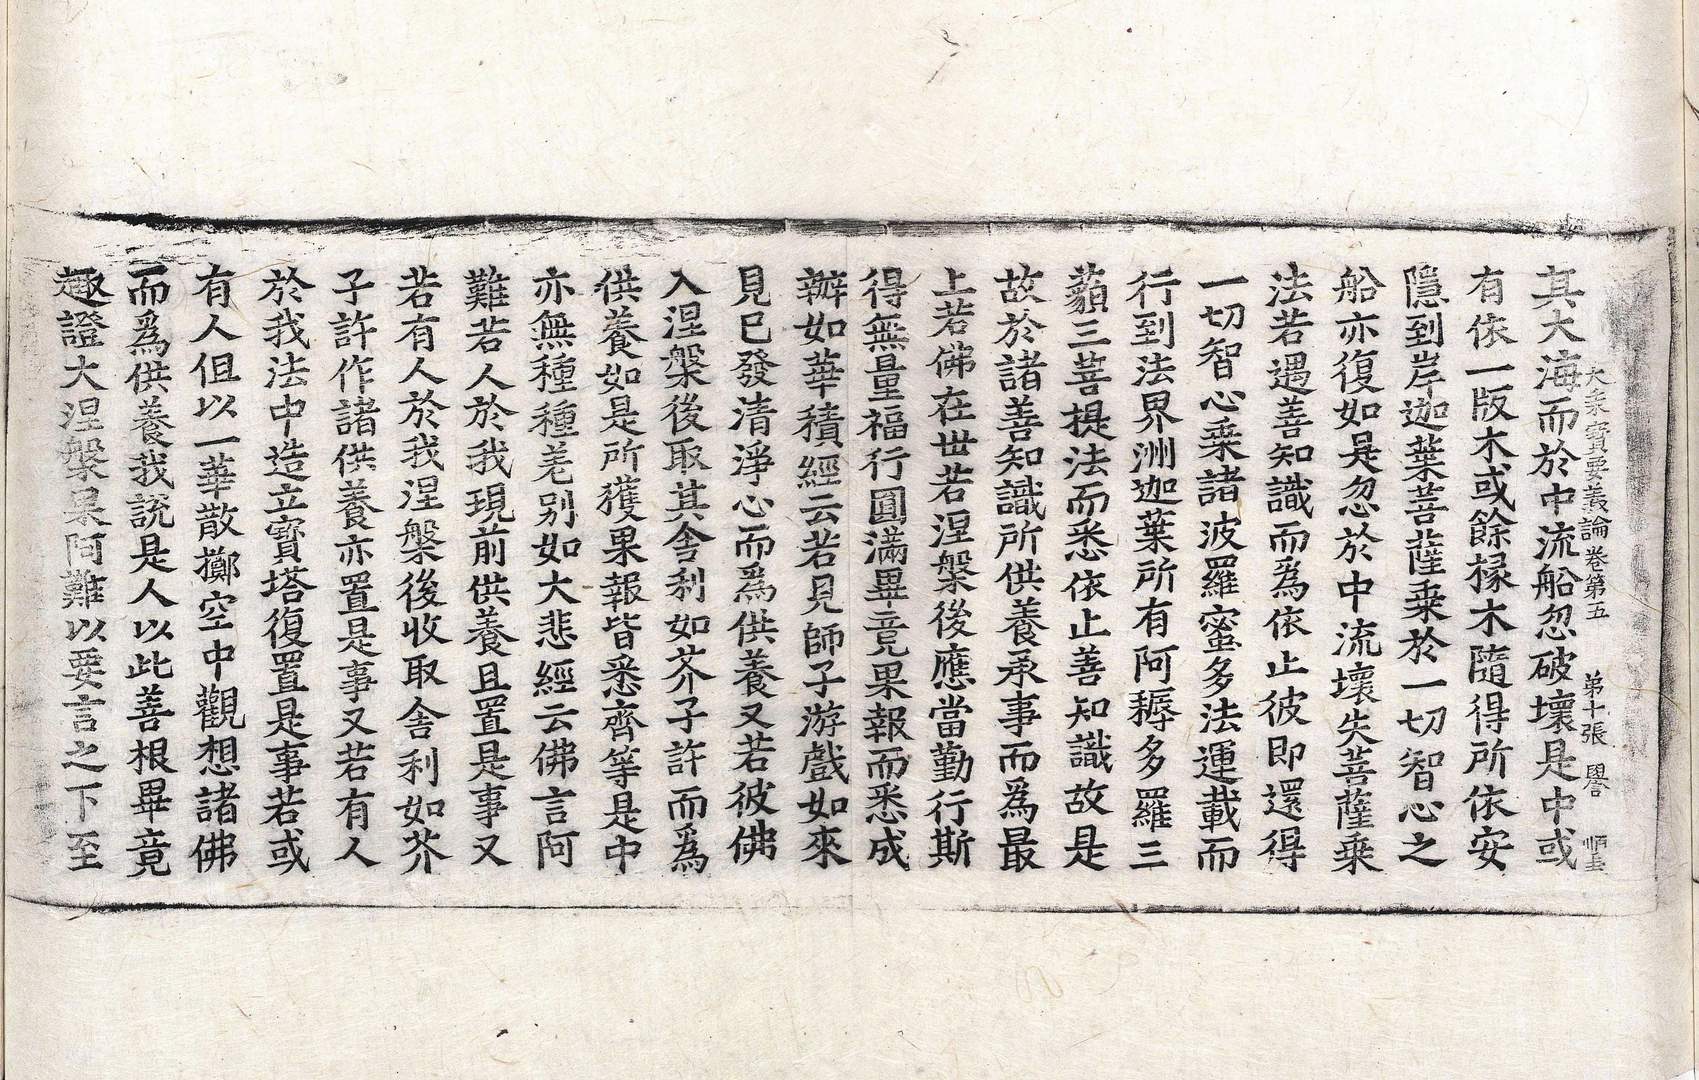 大乘寶要義論卷第五 第十張 譽
其大海而於中流船忽破壞是中或
有依一版木或餘椽木隨得所依安
隱到岸迦葉菩薩乘於一切智心之
船亦復如是忽於中流壞失菩薩乘
法若遇善知識而爲依止彼即還得
一切智心乘諸波羅蜜多法運載而
行到法界洲迦葉所有阿耨多羅三
藐三菩提法而悉依止善知識故是
故於諸善知識所供養承事而爲最
上若佛在世若涅槃後應當勤行斯
得無量福行圓滿畢竟果報而悉成
辦如華積經云若見師子游戲如來
見已發清淨心而爲供養又若彼佛
入涅槃後取其舍利如芥子許而爲
供養如是所獲果報皆悉齊等是中
亦無種種差別如大悲經云佛言阿
難若人於我現前供養且置是事又
若有人於我涅槃後收取舍利如芥
子許作諸供養亦置是事又若有人
於我法中造立寶塔復置是事若或
有人但以一華散擲空中觀想諸佛
而爲供養我說是人以此善根畢竟
趣證大涅槃果阿難以要言之下至